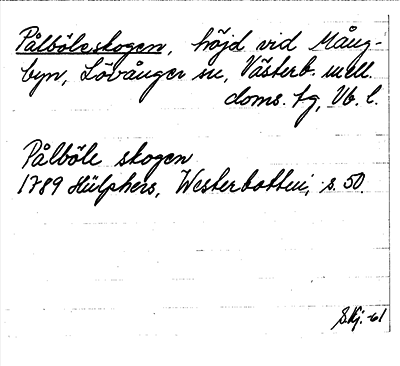 Pålböleskogen, höjd vid Mång-
byn, Lövånger sn, Västerb. mell.
doms. tg, Vb. l.
Pålböle skogen
1789 Hülphers, Westerbotten, s. 50.
Skj. -61